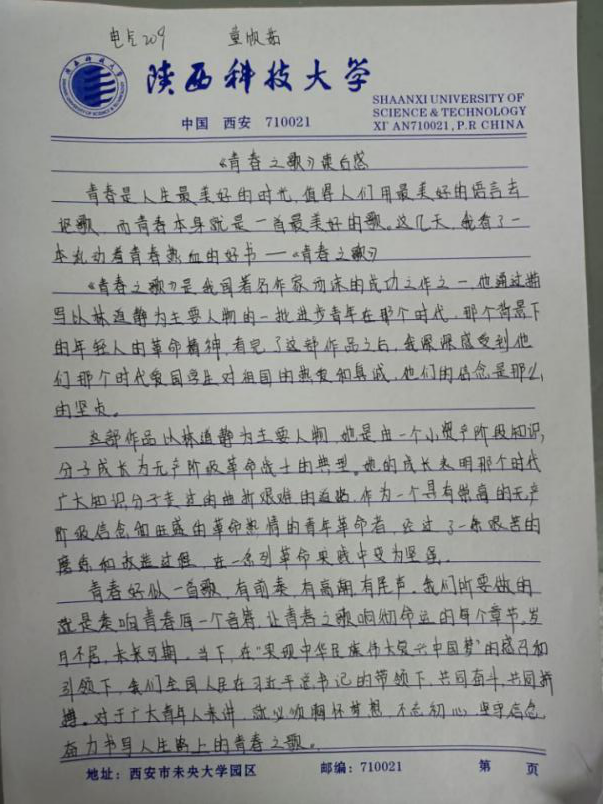 电气209 童帆茹
陕西科技大学
SHAANXI UNIVERSITY OF
SCIENCE & TECHNOLOGY
中国 西安 710021
XI'AN710021, P.R CHINA
《青春之歌》读后感
青春是人生最美好的时光,值得人们用最美好的语言去
讴歌,而青春本身就是一首最美好的歌。这几天,我看了一
本激动着青春热血的好书——《青春之歌》
《青春之歌》是我国著名作家杨沫的成功之作之一,她通过描
写以林道静为主要人物的一批进步青年在那个时代,那个背景下
的年轻人的革命精神,看完了这部作品之后,我深深感受到他
们那个时代爱国学生对祖国的热爱和真诚,他们的信念是那么
的坚贞。
这部作品以林道静为主要人物,她是由一个小资产阶级知识
分子成长为无产阶级革命战士的典型。她的成长表明那个时代
广大知识分子走过的曲折艰难的道路,作为一个具有崇高的无产
阶级信念和旺盛的革命热情的青年革命者,经过了一条艰苦的
磨练和改造过程,在一系列革命实践中变为坚强。
青春好似一首歌,有前奏,有高潮,有尾声。我们所要做的
就是奏响青春每一个音符,让青春之歌响彻命运的每个章节,岁
月不居,未来可期。当下,在"实现中华民族伟大复兴中国梦"的感召和
引领下,我们全国人民在习近平总书记的带领下,共同奋斗,共同拼
搏。对于广大青年人来讲,就必须胸怀梦想,不忘初心,坚守信念,
奋力书写人生路上的青春之歌。
地址:西安市未央大学园区 邮编:710021 第 页